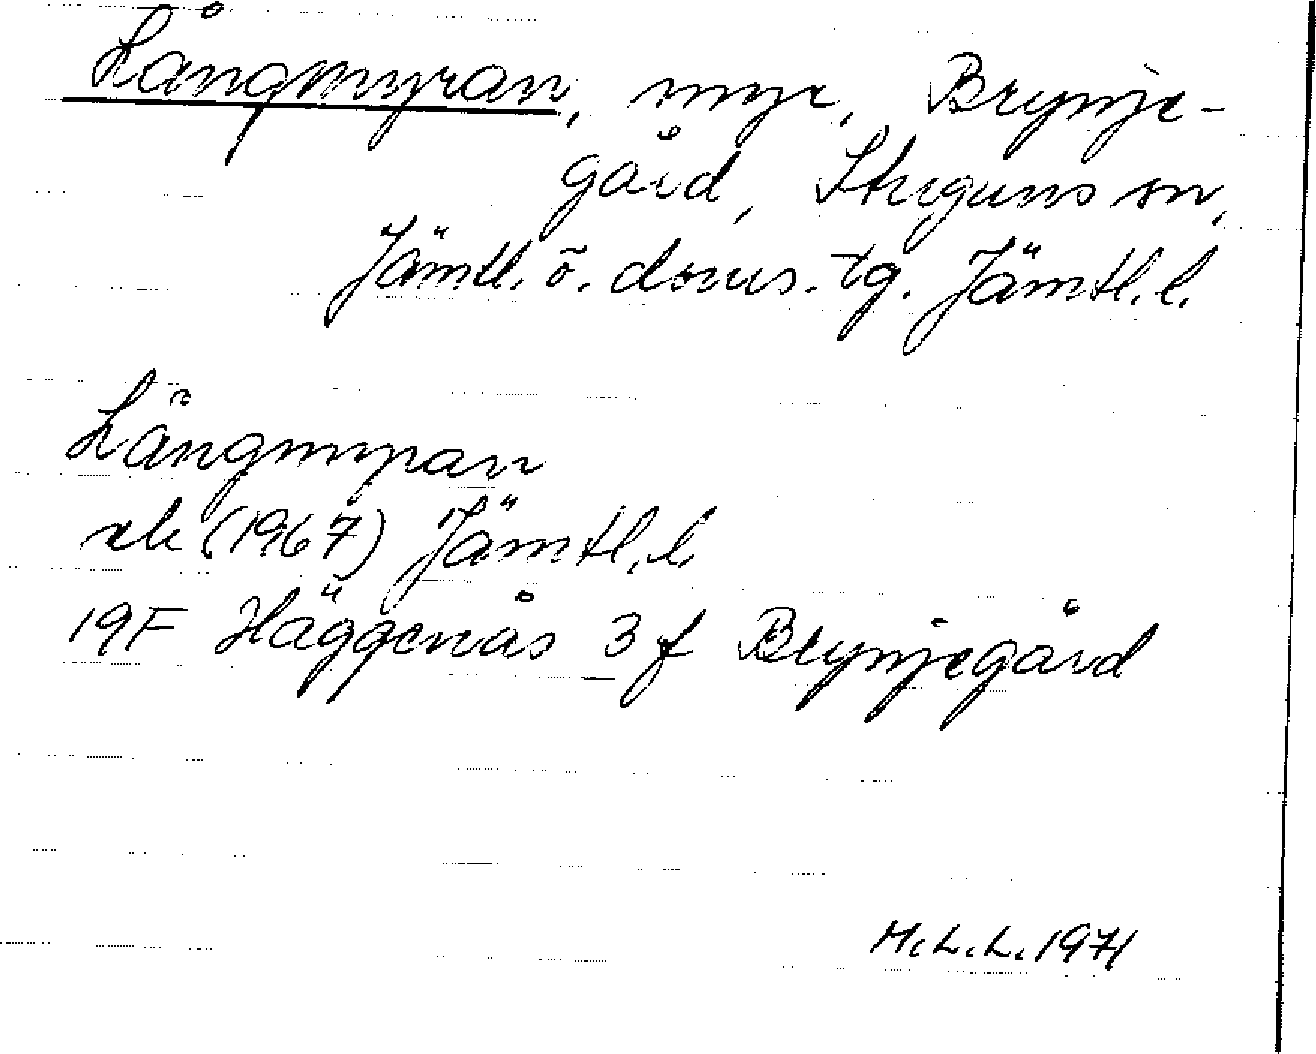 Långmyran, myr, Brynje-
gård, Stuguns sn,
Jämtl. ö. doms. tg. Jämtl. l.
Långmyran
ek (1967) Jämtl. l.
19F Häggenås 3f Brynjegård
M.L.L. 1971